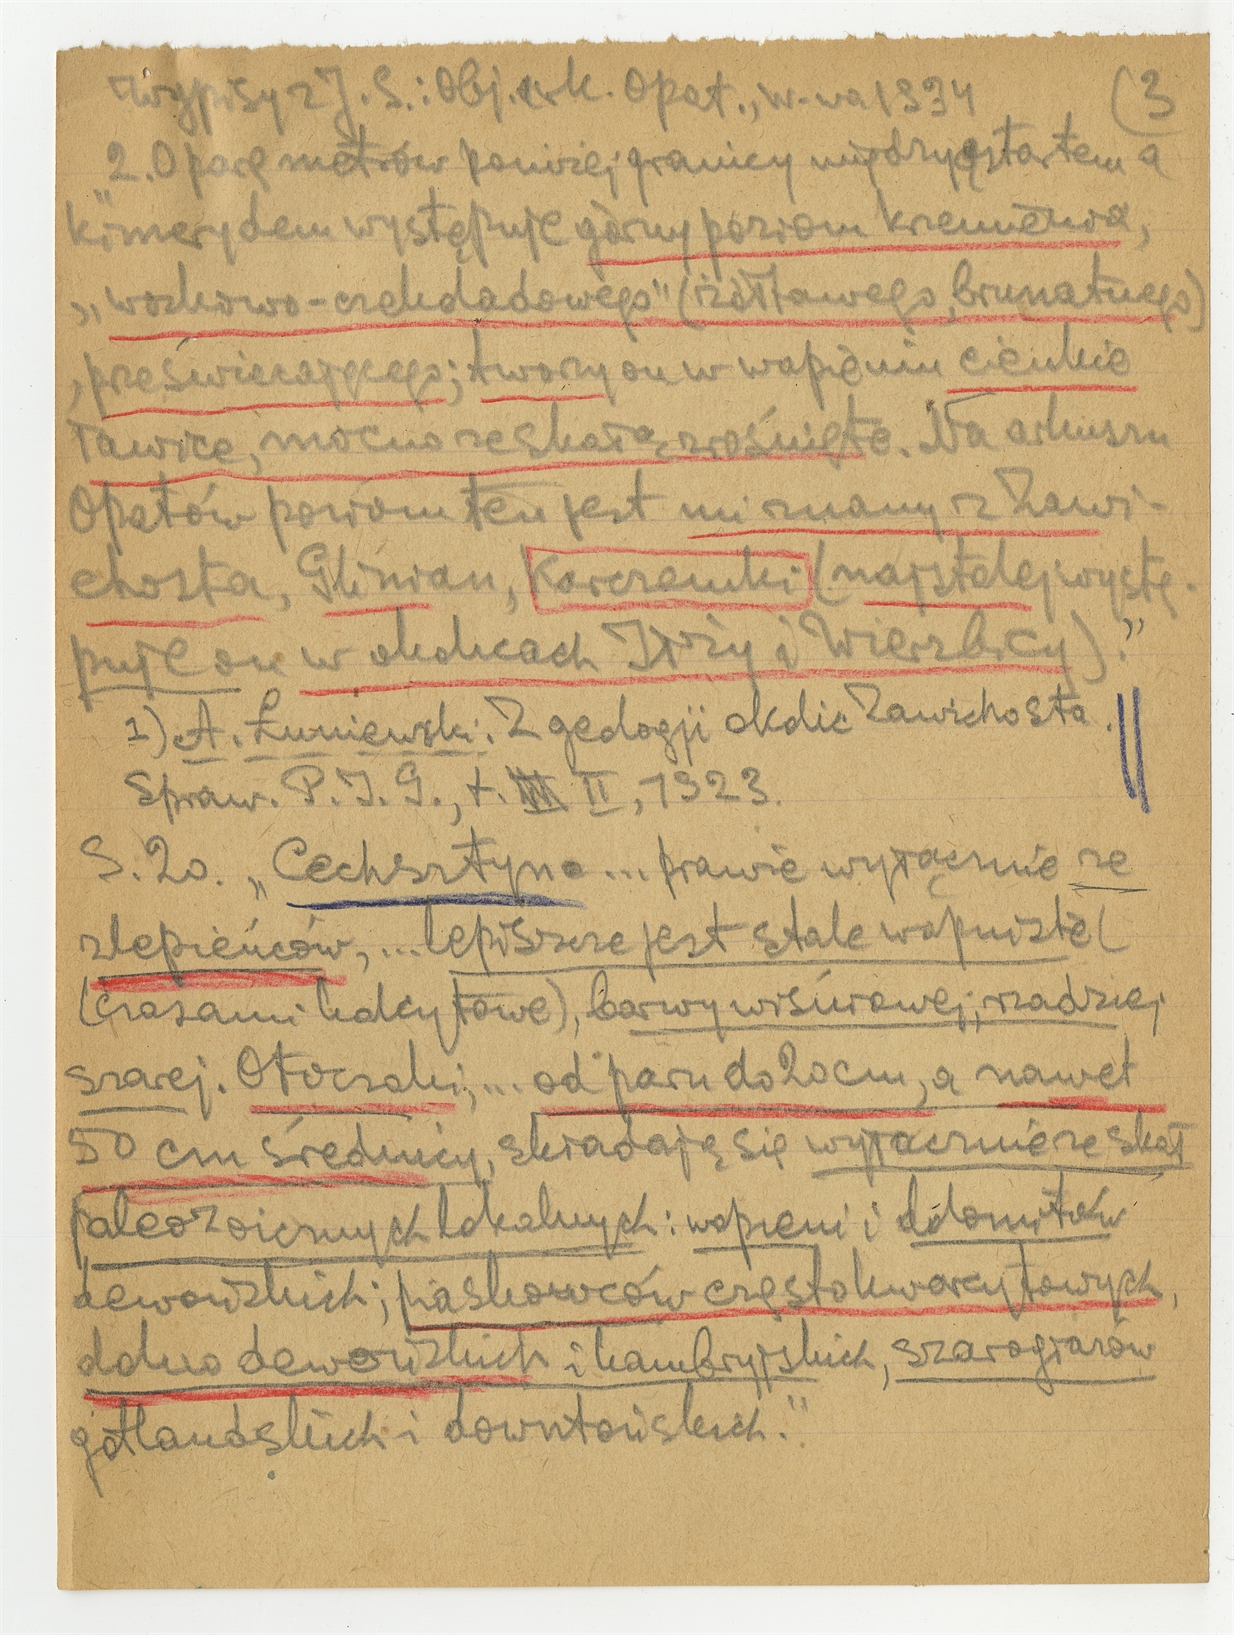 Wypisy z J. S.: Obj. ark. Opat., W-wa 1934 (3
„2. O parę metrów poniżej granicy między astartem a
kimerydem występuje górny poziom krzemienia,
„woskowo-czekoladowego" (żółtawego, brunatnego)
, przeświecającego; tworzy on w wapieniu cienkie
ławice, mocno ze skałą zrośnięte. Na arkuszu
Opatów poziom ten jest mi znany z Zawi-
chosta, Glinian, Karczemki (najstalej wystę-
puje on w okolicach Iłży i Wierzbicy)."
1) A. Łuniewski: Z geologji okolic Zawichosta.
Spraw. P. I. G., t. II, 1923.
S. 20. „Cechsztyn ... prawie wyłącznie ze
zlepieńców, ... lepiszcze jest stale wapniste (
(czasami kalcytowe), barwy wiśniowej, rzadziej
szarej. Otoczaki, ... od paru do 20 cm, a nawet
50 cm średnicy, składają się wyłacznie ze skał
paleozoicznych lokalnych: wapieni i dolomitów
dewońskich; piaskowców często kwarcytowych,
dolno dewońskich i kambryjskich, szarogłazów
gotlandskich i downtońskich."